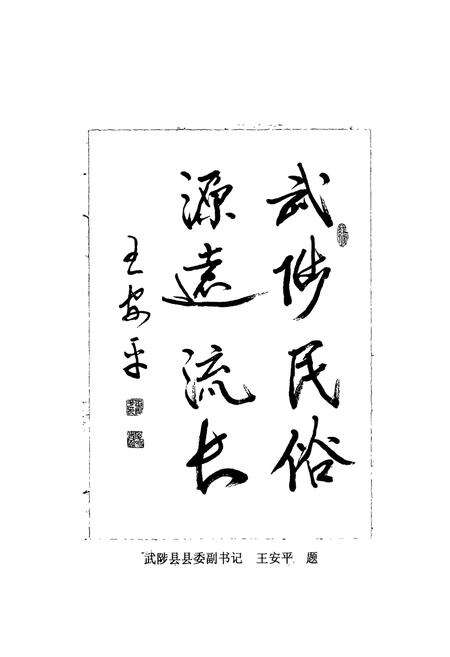 武陟民俗
源遠流长
王安平
武陟县县委副书记 王安平 题